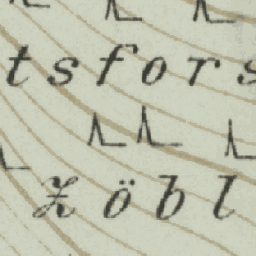 tsfors
Zöbl